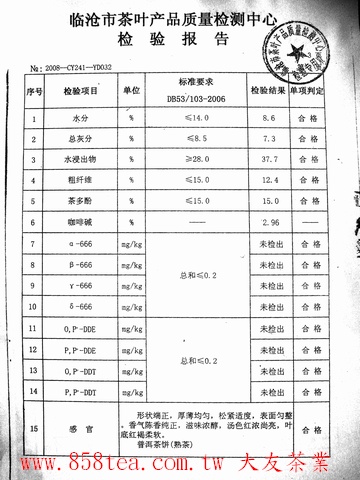 临沧市茶叶产品质量检测中心
检 验 报 告
№: 2008—CY241—YD032
序号 检验项目 单位 标准要求 DB53/103-2006 检验结果 单项判定
1 水分 % ≤14.0 8.6 合 格
2 总灰分 % ≤8.5 7.3 合 格
3 水浸出物 % ≥28.0 37.7 合 格
4 粗纤维 % ≤15.0 12.4 合 格
5 茶多酚 % ≤15.0 15.0 合 格
6 咖啡碱 % —— 2.96 ——
7 α-666 mg/kg 总和≤0.2 未检出 合 格
8 β-666 mg/kg 未检出 合 格
9 γ-666 mg/kg 未检出 合 格
10 δ-666 mg/kg 未检出 合 格
11 O,P'-DDE mg/kg 总和≤0.2 未检出 合 格
12 P,P'-DDE mg/kg 未检出 合 格
13 O,P'-DDT mg/kg 未检出 合 格
14 P,P'-DDT mg/kg 未检出 合 格
15 感 官 形状端正，厚薄均匀，松紧适度，表面匀整
。香气陈香纯正，滋味浓醇，汤色红浓尚亮，叶
底红褐柔软。
普洱茶饼(熟茶) 合格
www.858tea.com.tw 大友茶業